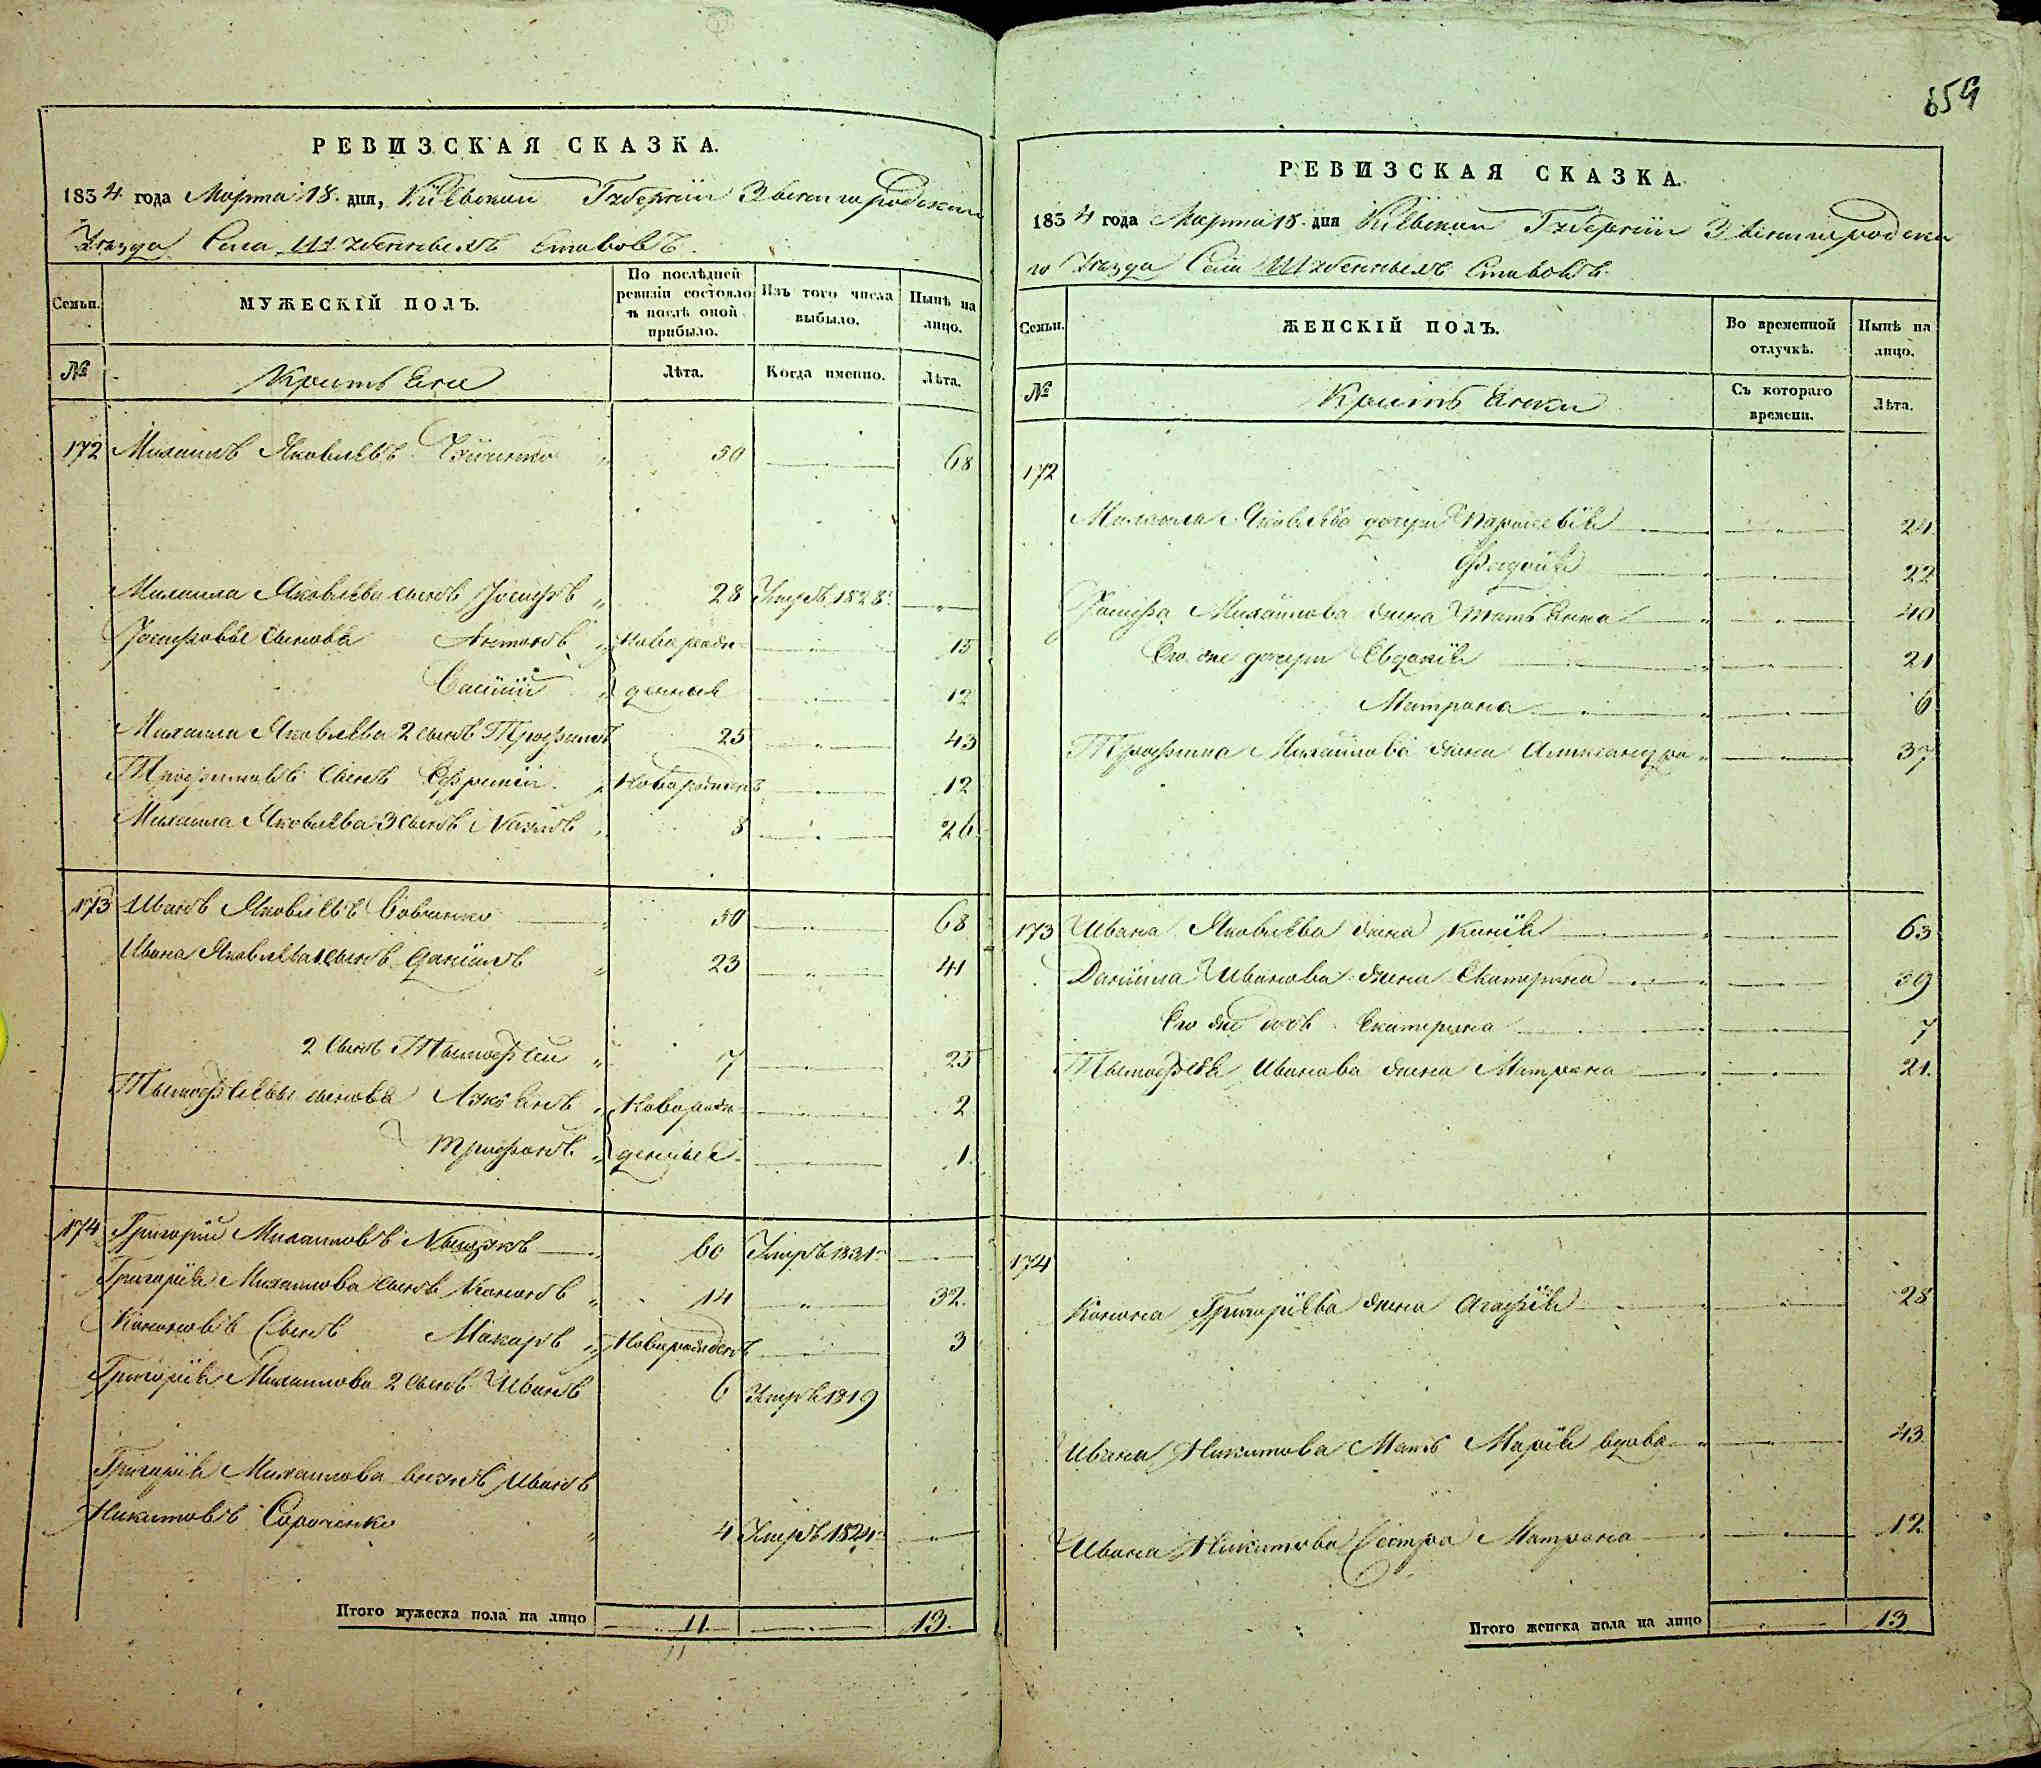 659
РЕВИЗСКАЯ СКАЗКА.
1834 года Марта 18. дня, Кіевской Губерніи Звенигородскаго
Уѣзда Села Шубенныхъ Ставовъ.
Семьи. МУЖЕСКІЙ ПОЛЪ. По послѣдней ревизіи состояло и послѣ оной прибыло. Изъ того числа выбыло. Нынѣ на лицо.
№ Крестьяне Лѣта. Когда именно. Лѣта.
172 Михаилъ Яковлевъ 50 68
Михаила Яковлева сынъ Іосифъ 28 Умеръ 1828.
Іосифовы сыновья Антонъ новорож- 15
Василій денные 12
Михаила Яковлева 2 сынъ Трофимъ 25 43
Трофимовъ сынъ Ефремій новорожденъ 12
Михаила Яковлева 3 сынъ 8 26
173 Иванъ Яковлевъ Вовченко 50 68
Ивана Яковлева сынъ Даніилъ 23 41
2 сынъ Тымофей 7 25
Тымофеевы сыновья Лукьянъ Новорож- 2
Трифонъ денные 1.
174 Григорій Михаиловъ 60 Умеръ 1831
Григорія Михаилова сынъ Кононъ 14 32.
Кононовъ Сынъ Макаръ Новорожденъ 3
Григорія Михаилова 2 сынъ Иванъ 6 Умеръ 1819
Григорія Михаилова внукъ Иванъ
Никитовъ Сороченко 4 Умеръ 1824
Итого мужеска пола на лицо 11. 13.
11
РЕВИЗСКАЯ СКАЗКА.
1834 года Марта 18. дня Кіевской Губерніи Звенигородска
го Уѣзда Села Шубенныхъ Ставовъ.
Семьи. ЖЕНСКІЙ ПОЛЪ. Во временной отлучкѣ. Нынѣ на лицо.
№ Крестьянки Съ котораго времени. Лѣта.
172
Михаила Яковлева дочери Параскевія 24
Федосія 22
Іосифа Михаилова жена Татьяна 40
Его же дочери Евдокія 21
Матрона 6
Трофима Михаилова жена Александра 37
173 Ивана Яковлева жена Ксенія 63
Даніила Иванова жена Екатерина 39
Его же дочь Екатерина 7
Тымофея Иванова жена Матрона 21.
174
Конона Григоріева жена Агафія 28
Ивана Никитова Мать Марія вдова 43
Ивана Никитова Сестра Матрона 12
Итого женска пола на лицо 13